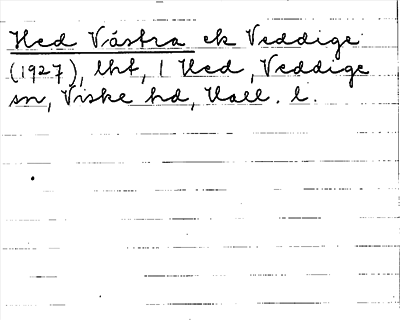 Hed Västra ek Veddige
(1927), lht, 1 Hed, Veddige
sn, Viske hd, Hall. l.